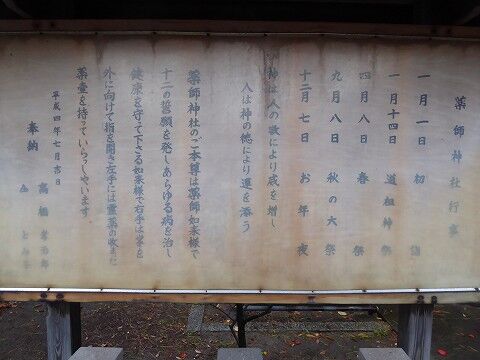 薬師神社行事
一月一日 初詣
一月十四日 道祖神祭
四月八日 春祭
九月八日 秋の大祭
十二月七日 お年夜
神は人の敬により威を増し
人は神の徳により運を添う
薬師神社のご本尊は薬師如来様で
十二の誓願を発しあらゆる病を治し
健康を守て下さる如来様で右手は掌を
外に向けて指を開き左手には霊薬の収まった
薬壷を持っていらっしゃいます
平成四年七月吉日
奉納 高橋